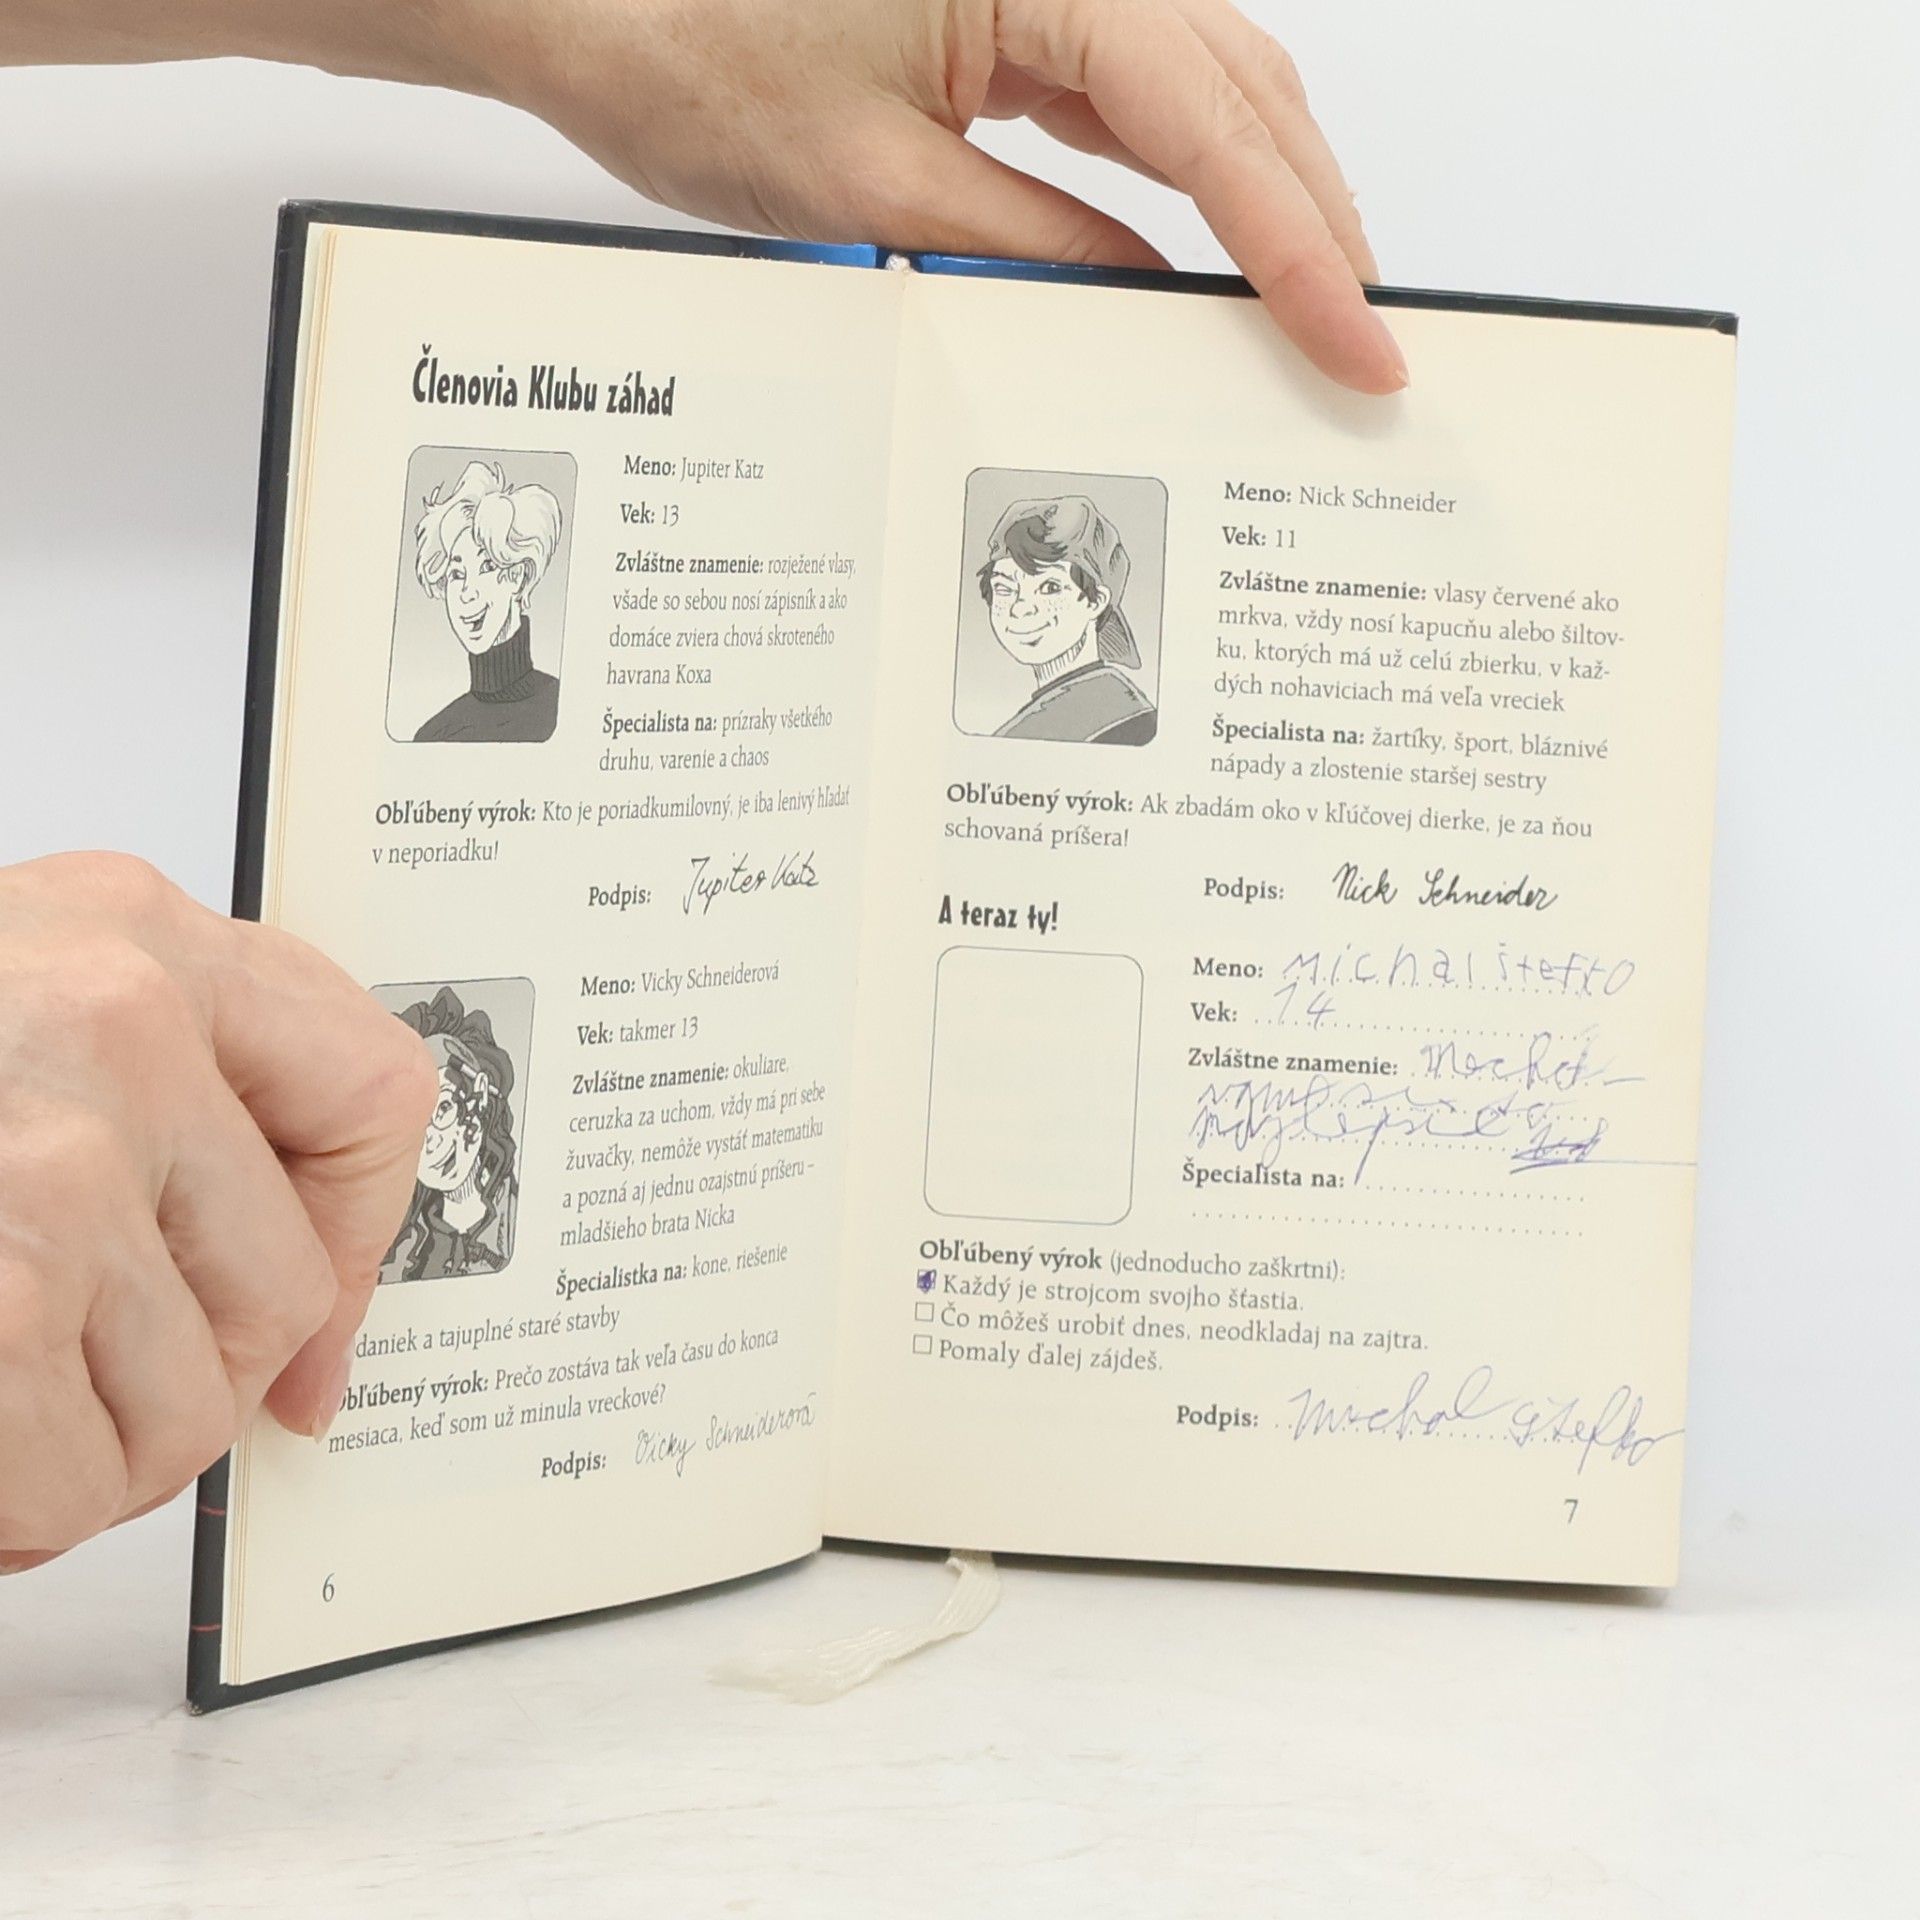 Členovia Klubu záhad
Meno: Jupiter Katz
Vek: 13
Zvláštne znamenie: rozježené vlasy,
všade so sebou nosí zápisník a ako
domáce zviera chová skroteného
havrana Koxa
Špecialista na: prízraky všetkého
druhu, varenie a chaos
Obľúbený výrok: Kto je poriadkumilovný, je iba lenivý hľadať
v neporiadku!
Podpis: Jupiter Katz
Meno: Vicky Schneiderová
Vek: takmer 13
Zvláštne znamenie: okuliare,
ceruzka za uchom, vždy má pri sebe
žuvačky, nemôže vystáť matematiku
a pozná aj jednu ozajstnú príšeru –
mladšieho brata Nicka
Špecialistka na: kone, riešenie
daniek a tajuplné staré stavby
bľúbený výrok: Prečo zostáva tak veľa času do konca
mesiaca, keď som už minula vreckové?
Podpis: Vicky Schneiderová
6
Meno: Nick Schneider
Vek: 11
Zvláštne znamenie: vlasy červené ako
mrkva, vždy nosí kapucňu alebo šiltov-
ku, ktorých má už celú zbierku, v kaž-
dých nohaviciach má veľa vreciek
Špecialista na: žartíky, šport, bláznivé
nápady a zlostenie staršej sestry
Obľúbený výrok: Ak zbadám oko v kľúčovej dierke, je za ňou
schovaná príšera!
Podpis: Nick Schneider
A teraz ty!
Meno: Michal Štefko
Vek: 14
Zvláštne znamenie:
Špecialista na:
Obľúbený výrok (jednoducho zaškrtni):
Každý je strojcom svojho šťastia.
Čo môžeš urobiť dnes, neodkladaj na zajtra.
Pomaly ďalej zájdeš.
Podpis: Michal Štefko
7